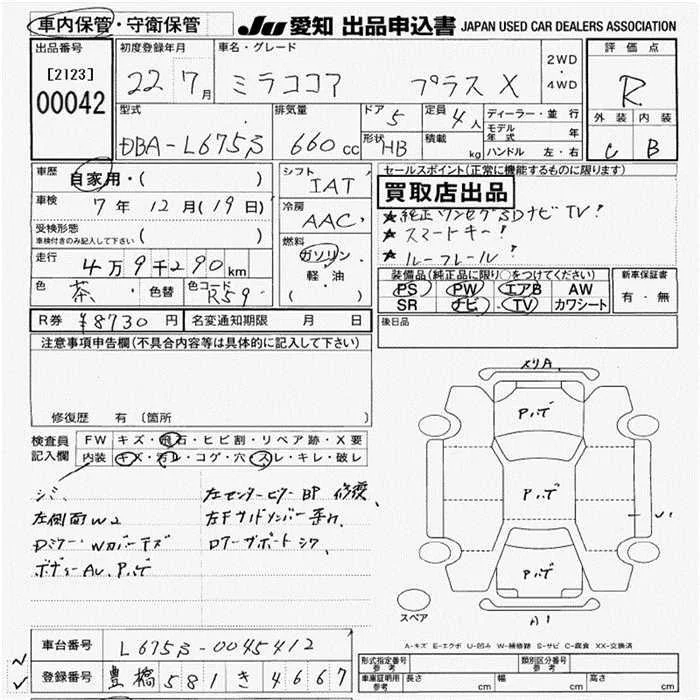 車内保管・守衛保管 JU 愛知 出品申込書 JAPAN USED CAR DEALERS ASSOCIATION
出品番号 初度登録年月 車名・グレード 2WD・4WD 評価点
[2123] 22 7月 ミラココア プラスX R
00042
型式 排気量 ドア 5 定員 4人 ディーラー・並行 外装 内装
DBA-L675S 660cc 形状 HB 積載 kg モデル年式 年 C B
ハンドル 左・右
車歴 自家用・( ) シフト IAT セールスポイント(正常に機能するものに限ります)
車検 7年12月(19日) 冷房 AAC 買取店出品
受検形態 車検付きのみ記入して下さい ( ) ★純正ワンセグSDナビTV!
走行 4万9千290km 燃料 ガソリン・軽・油 ( ) ★スマートキー!
★ルーフレール!
色 茶 色替 色コード R59 装備品(純正品に限り○をつけてください) 新車保証書
PS PW エアB AW 有・無
R券 ¥8730円 名変通知期限 月 日 SR ナビ・TV カワシート
注意事項申告欄(不具合内容等は具体的に記入して下さい) 後日品
修復歴 有(箇所 )
検査員記入欄 FW キズ・飛石・ヒビ割・リペア跡・X要
内装 キズ・汚レ・コゲ・穴・スレ・キレ・破レ
シミ 左センターピラーBP修復
左側面W2
Dミラー・Wカバーキズ
ボディーAU、Pハゲ
メリA
Pハゲ
Pハゲ
Pハゲ
A1
スペア
A-キズ E-エクボ U-凹み W-補修跡 S-サビ C-腐食 XX-交換済
車台番号 L675S-0045412 型式指定番号 参考 類別区分番号 参考
登録番号 豊橋581き4667 車庫証明用 参考 長さ cm 幅 cm 高さ cm